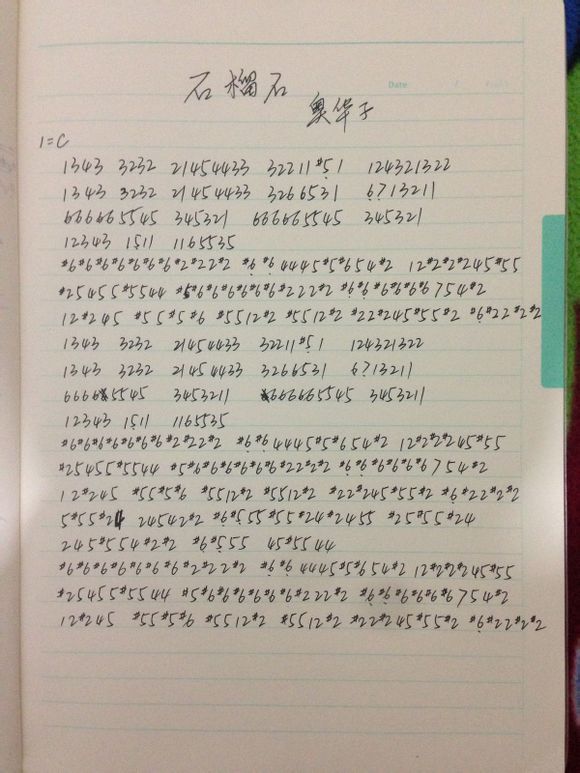 石榴石
奥华子
Date
1=C
1343 3232 21454433 32211#5̣1 124321322
1343 3232 21454433 3266531 6̣7̣13211
666665545 345321 666665545 345321
12343 15̣11 1165535
#6#6#6#6#6#6#6#2#22#2 #6̣#6̣4445#5#654#2 12#2#2#245#55
#25455#5544 #5#6#6#6#6#6#6#222#2 #6̣#6̣#6#6#6#6754#2
12#245 #55#5#6 #5512#2 #5512#2 #22#245#55#2 #6̣#22#2#2
1343 3232 21454433 32211#5̣1 124321322
1343 3232 21454433 3266531 6̣7̣13211
66665545 3453211 666665545 3453211
12343 15̣11 1165535
#6#6#6#6#6#6#6#2#22#2 #6̣#6̣4445#5#654#2 12#2#2#245#55
#25455#5544 #5#6#6#6#6#6#6#22#2#2 #6̣#6̣#6#6#6#6754#2
12#245 #55#5#6 #5512#2 #5512#2 #22#245#55#2 #6̣#22#2#2
5#55#24 24542#2 #6#5̣55#55#24#2455 #25#55#24
245#554#2#2 #6#5̣55 45#5544
#6#6#6#6#6#6#6#2#22#2 #6̣#6̣4445#5#654#2 12#2#2#245#55
#25455#5544 #5#6#6#6#6#6#6#222#2 #6̣#6̣#6#6#6#6754#2
12#245 #55#5#6 #5512#2 #5512#2 #22#245#55#2 #6̣#22#2#2